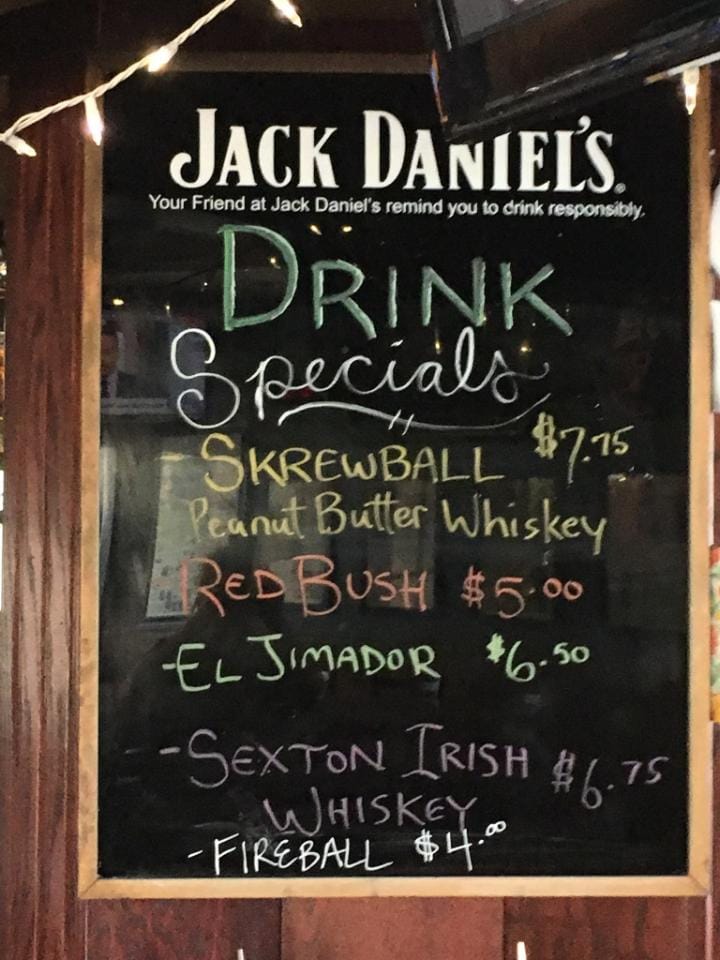 JACK DANIEL'S®
Your Friend at Jack Daniel's remind you to drink responsibly.
DRINK
Specials
- SKREWBALL $7.75
Peanut Butter Whiskey
- RED BUSH $5.00
- EL JIMADOR $6.50
- SEXTON IRISH $6.75
WHISKEY
- FIREBALL $4.00